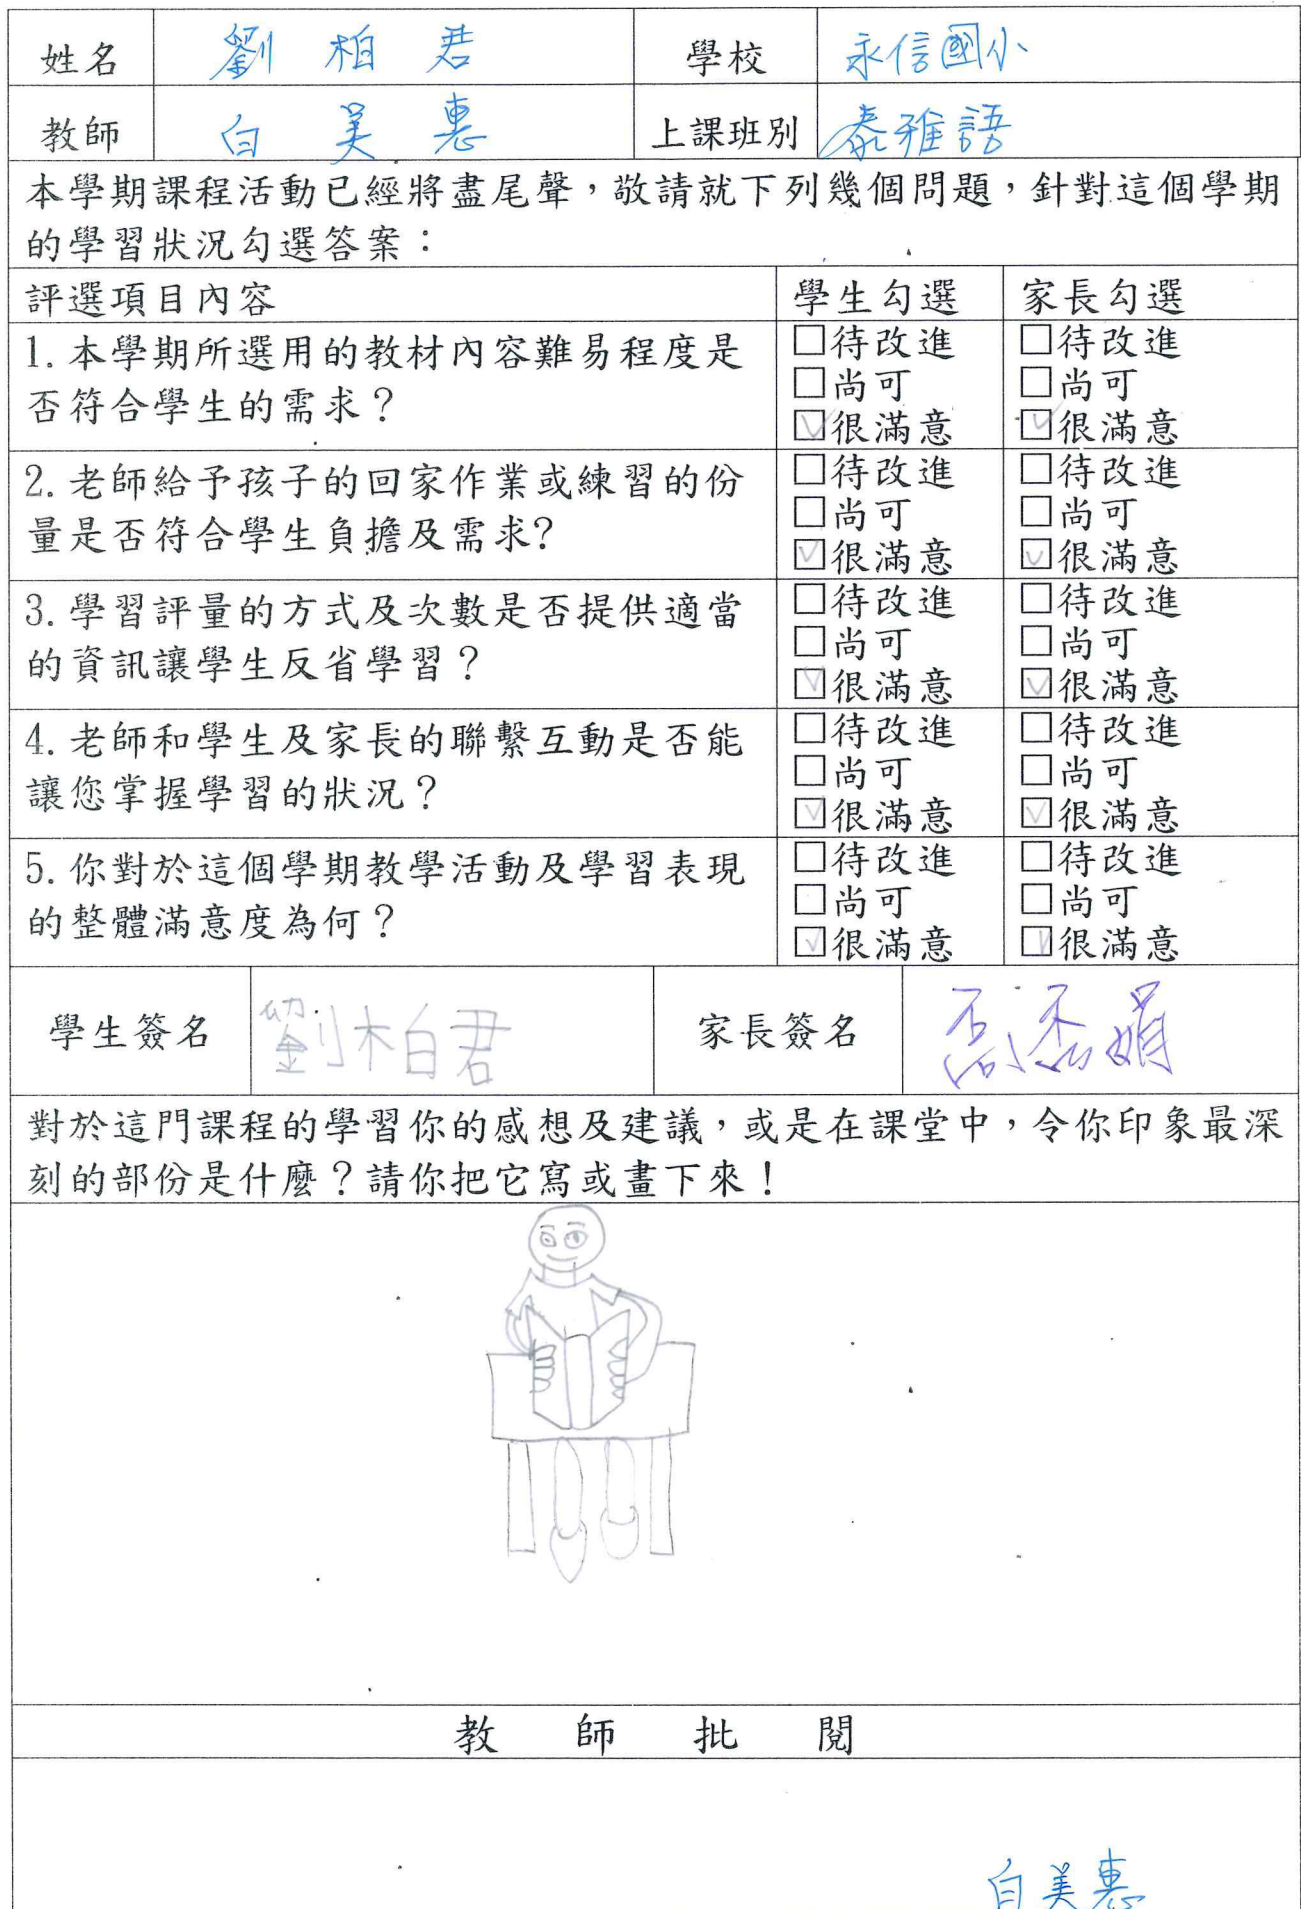 姓名 劉柏君 學校 永信國小
教師 白美惠 上課班別 泰雅語
本學期課程活動已經將盡尾聲，敬請就下列幾個問題，針對這個學期
的學習狀況勾選答案：
評選項目內容 學生勾選 家長勾選
1.本學期所選用的教材內容難易程度是
否符合學生的需求？
□待改進 □待改進
□尚可 □尚可
☑很滿意 ☑很滿意
2.老師給予孩子的回家作業或練習的份
量是否符合學生負擔及需求?
□待改進 □待改進
□尚可 □尚可
☑很滿意 ☑很滿意
3.學習評量的方式及次數是否提供適當
的資訊讓學生反省學習？
□待改進 □待改進
□尚可 □尚可
☑很滿意 ☑很滿意
4.老師和學生及家長的聯繫互動是否能
讓您掌握學習的狀況？
□待改進 □待改進
□尚可 □尚可
☑很滿意 ☑很滿意
5.你對於這個學期教學活動及學習表現
的整體滿意度為何？
□待改進 □待改進
□尚可 □尚可
☑很滿意 ☑很滿意
學生簽名 劉柏君 家長簽名
對於這門課程的學習你的感想及建議，或是在課堂中，令你印象最深
刻的部份是什麼？請你把它寫或畫下來！
教師批閱
白美惠